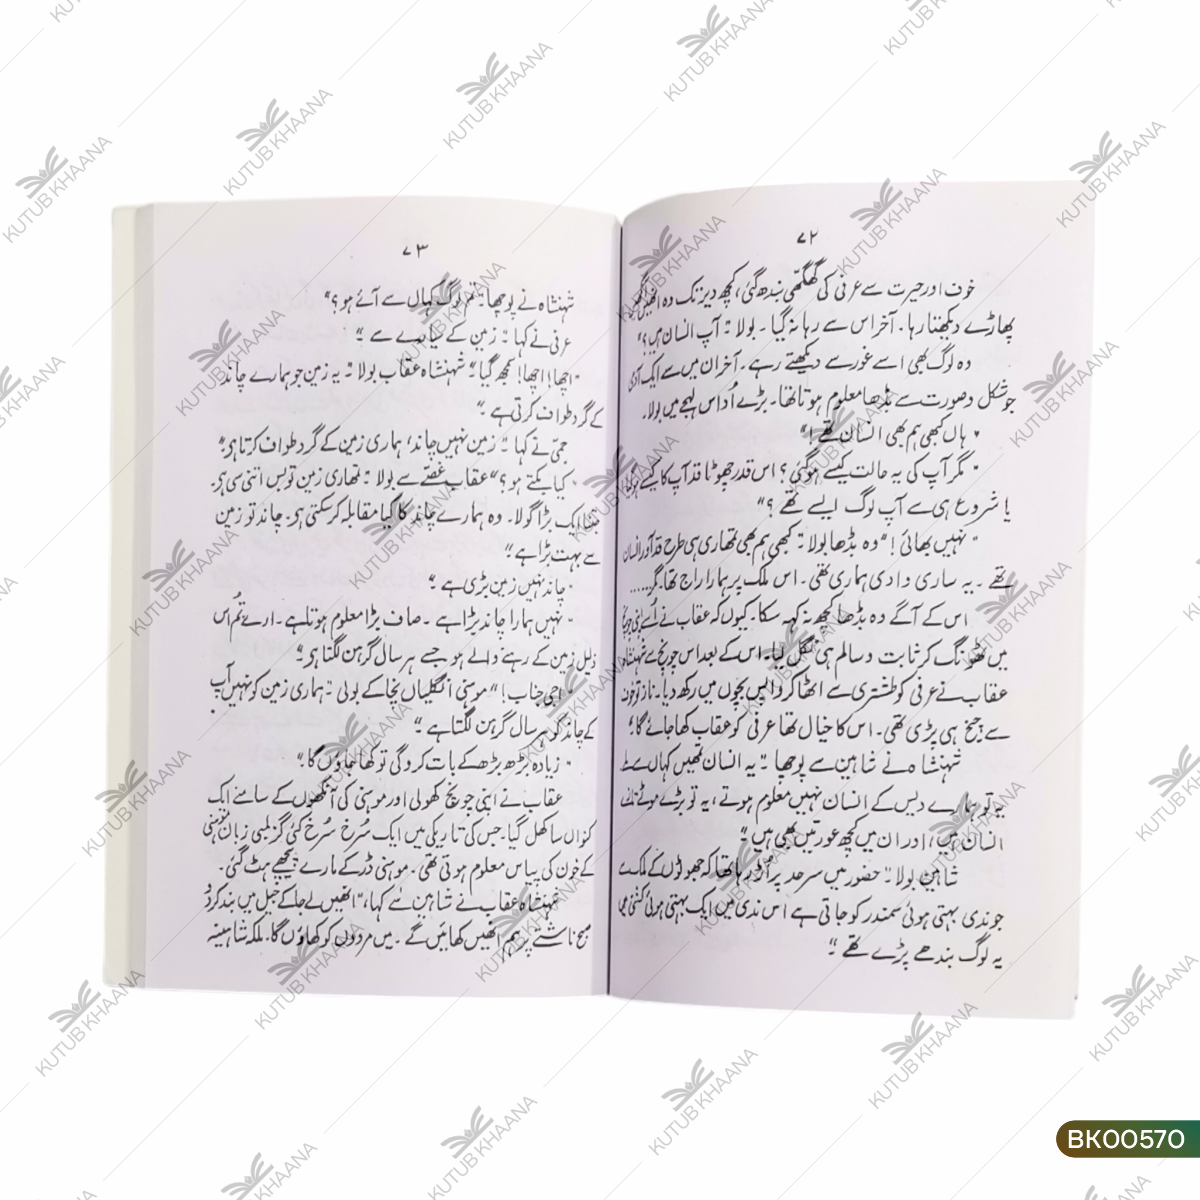 ۷۲
خوف اور حیرت سے عرفی کی گھگھی بندھ گئی، کچھ دیر تک وہ انھیں
پھاڑے دیکھتا رہا۔ آخر اس سے رہا نہ گیا۔ بولا "آپ انسان ہیں؟"
وہ لوگ بھی اسے غور سے دیکھتے رہے۔ آخر ان میں سے ایک آدمی
جو شکل و صورت سے بڈھا معلوم ہوتا تھا۔ بڑے اُداس لہجے میں بولا۔
"ہاں کبھی ہم بھی انسان تھے!"
"مگر آپ کی یہ حالت کیسے ہوگئی؟ اس قدر چھوٹا قد آپ کا کیسے ہوگیا
یا شروع ہی سے آپ لوگ ایسے تھے؟"
"نہیں بھائی!" وہ بڈھا بولا "کبھی ہم بھی تمھاری ہی طرح قدآور انسان
تھے۔ یہ ساری وادی ہماری تھی۔ اس ملک پر ہمارا راج تھا۔ مگر......
اس کے آگے وہ بڈھا کچھ نہ کہہ سکا۔ کیوں کہ عقاب نے اُسے اپنی چونچ
میں ٹھونگ کر ثابت و سالم ہی نگل لیا۔ اس کے بعد اس چونچ سے شہنشاہ
عقاب نے عرفی کو طشتری سے اٹھا کر واپس بچوں میں رکھ دیا۔ ناز تو خوف
سے چیخ ہی پڑی تھی۔ اس کا خیال تھا عرفی کو عقاب کھا جائے گا۔
شہنشاہ نے شاہین سے پوچھا "یہ انسان تمھیں کہاں سے ملے
یہ تو ہمارے دیس کے انسان نہیں معلوم ہوتے، یہ تو بڑے موٹے تازے
انسان ہیں، اور ان میں کچھ عورتیں بھی ہیں"
شاہین بولا "حضور میں سرحد پر اُڑ رہا تھا کہ جھوٹوں کے ملک سے
جو ندی بہتی ہوئی سمندر کو جاتی ہے اس ندی میں ایک بہتی ہوئی کشتی میں
یہ لوگ بندھے پڑے تھے"
۷۳
شہنشاہ نے پوچھا "تم لوگ کہاں سے آئے ہو؟"
عرفی نے کہا "زمین کے سیارے سے"
"اچھا! اچھا! سمجھ گیا" شہنشاہ عقاب بولا "یہ زمین جو ہمارے چاند
کے گرد طواف کرتی ہے"
جمی نے کہا "زمین نہیں چاند، ہماری زمین کے گرد طواف کرتا ہے"
"کیا بکتے ہو؟" عقاب غصے سے بولا "تمھاری زمین تو بس اتنی سی ہے۔
جتنا ایک بڑا گولا۔ وہ ہمارے چاند کا کیا مقابلہ کرسکتی ہے۔ چاند تو زمین
سے بہت بڑا ہے"
"چاند نہیں زمین بڑی ہے"
"نہیں ہمارا چاند بڑا ہے۔ صاف بڑا معلوم ہوتا ہے۔ ارے تُم اُس
ذلیل زمین کے رہنے والے ہو جسے ہر سال گرہن لگتا ہے"
"اجی جناب!" موہنی انگلیاں نچا کے بولی "ہماری زمین کو نہیں آپ
کے چاند کو ہر سال گرہن لگتا ہے"
"زیادہ بڑھ بڑھ کے بات کروگی تو کھا جاؤں گا"
عقاب نے اپنی چونچ کھولی اور موہنی کی آنکھوں کے سامنے ایک
کنواں سا کھل گیا۔ جس کی تاریکی میں ایک سُرخ سُرخ کئی گز لمبی زبان
کے خون کی پیاس معلوم ہوتی تھی۔ موہنی ڈر کے مارے پیچھے ہٹ گئی۔
شہنشاہ عقاب نے شاہین سے کہا، "انھیں لے جاکے جیل میں بند کردو
صبح ناشتے پر ہم انھیں کھائیں گے۔ میں مردوں کو کھاؤں گا۔ ملکہ شاہینہ
KUTUB KHAANA
BK00570